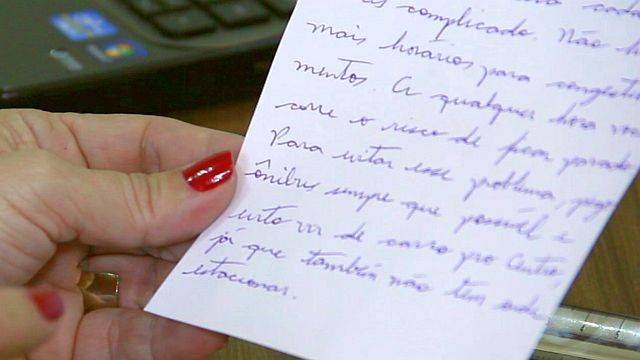 cada
complicado. Não h
mais horários para congestio
mentos. A qualquer hora vo
corre o risco de ficar parado
Para evitar esse problema, pego
ônibus sempre que possível e
evito ir de carro pro Centro,
já que também não tem onde
estacionar.